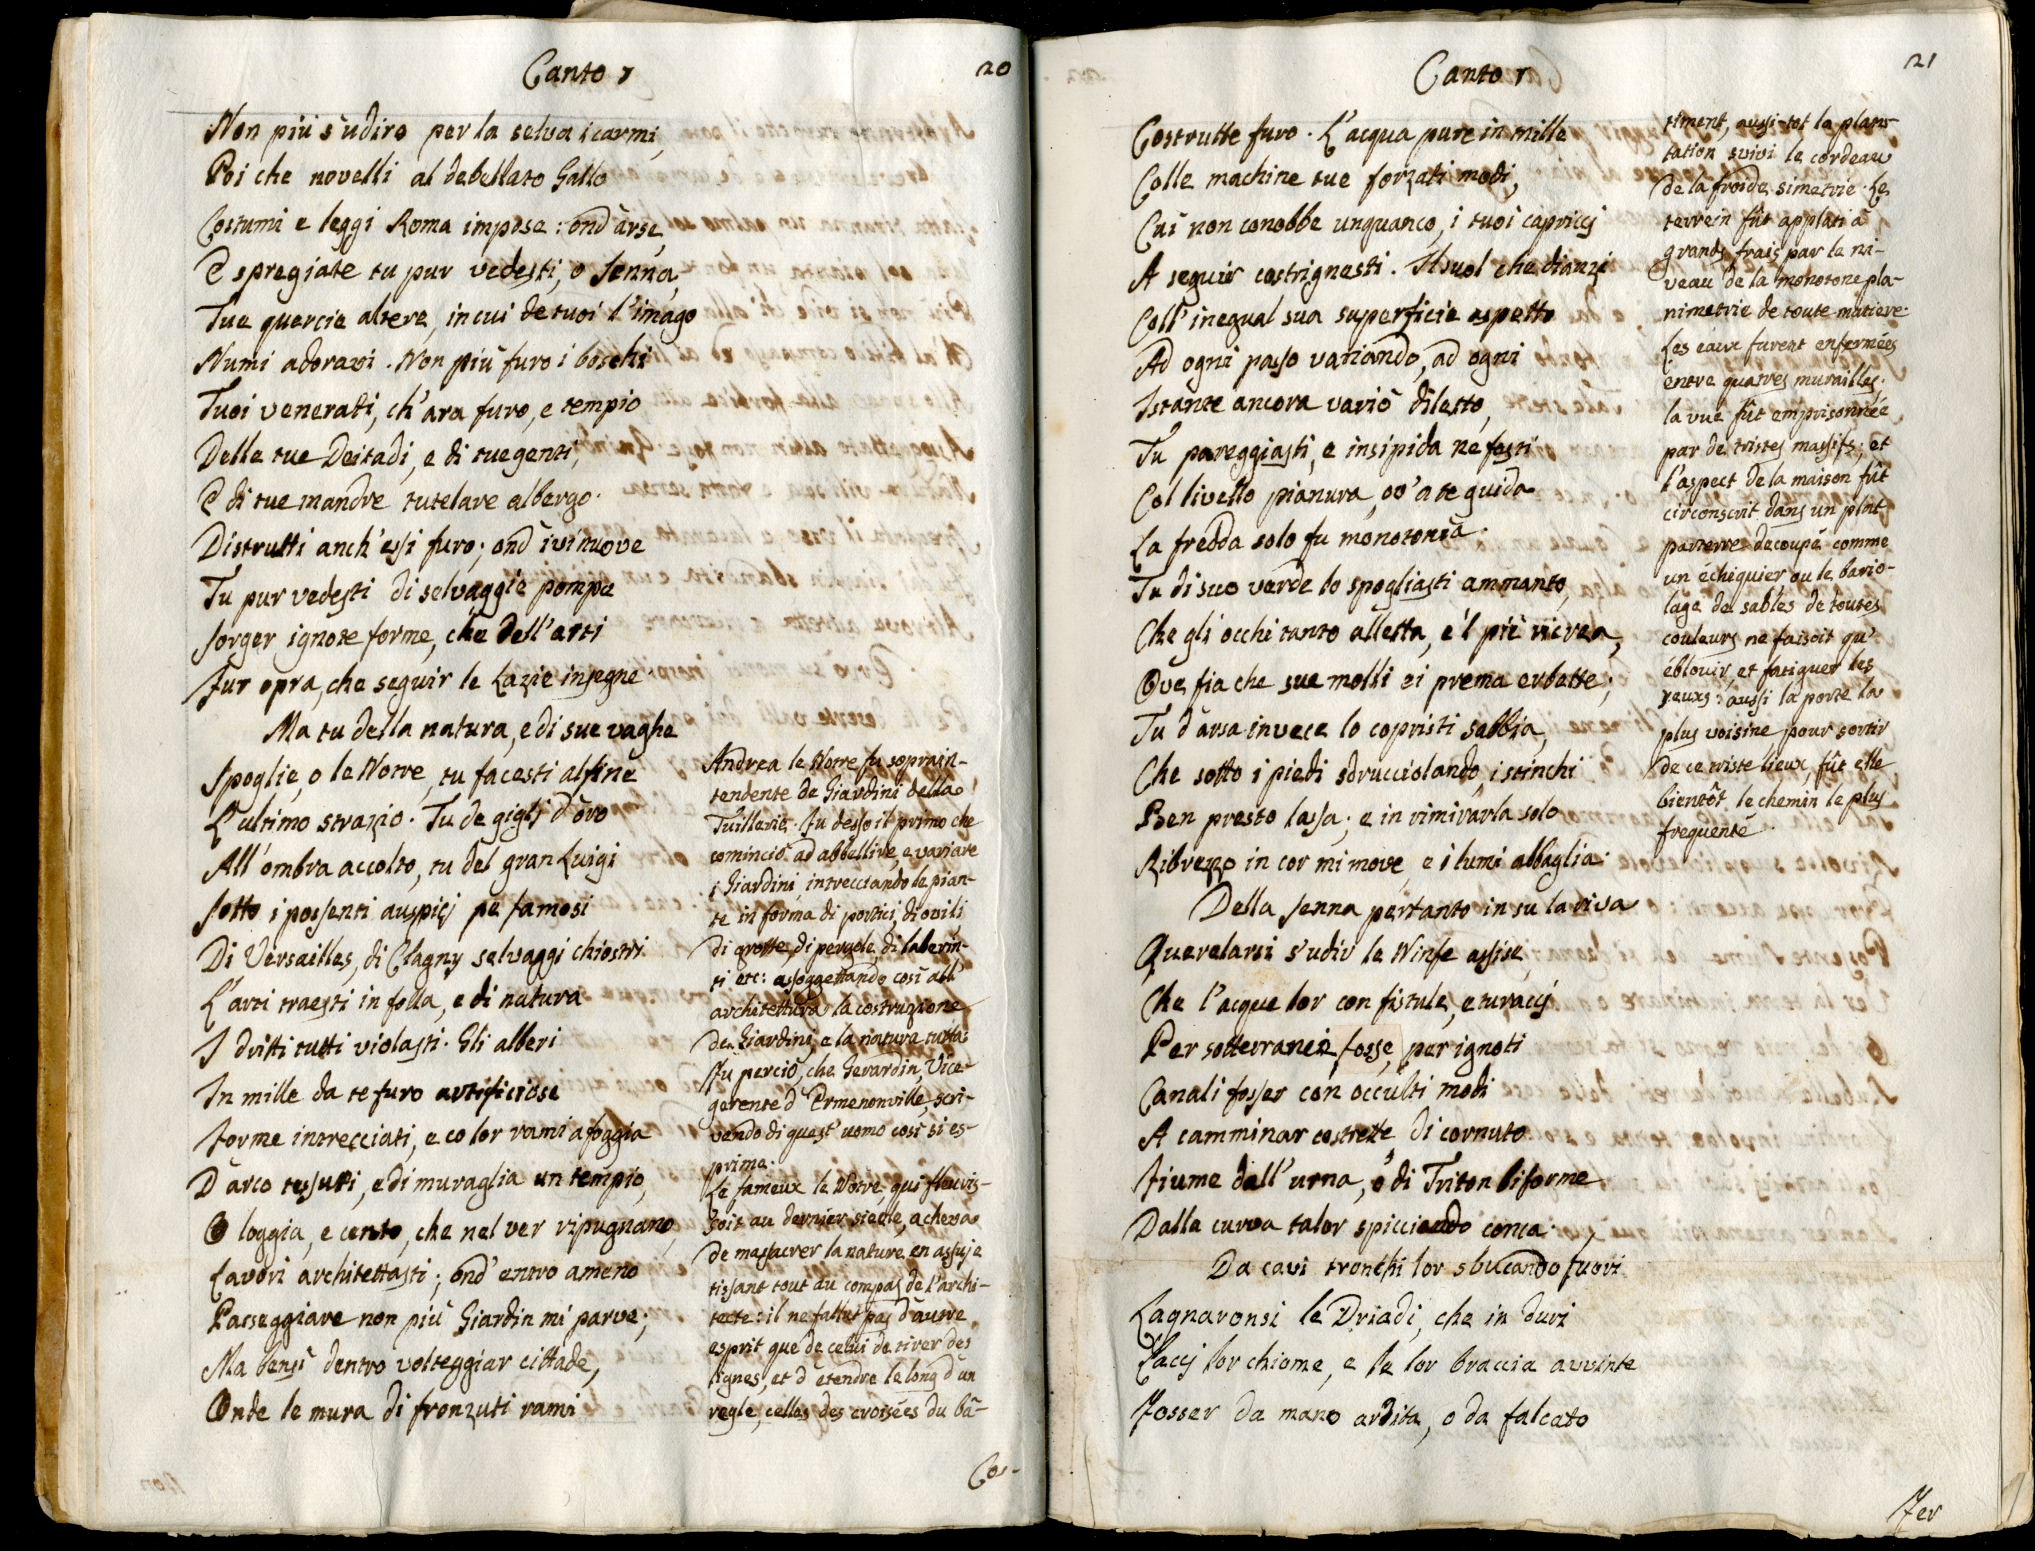 Canto 1
20
Non più s'udiro per la selva i carmi,
Poi che novelli al debellato Gallo
Costumi e leggi Roma impose: ond'arse,
E spregiate tu pur vedesti, o Senna,
Tue quercie altere, in cui de tuoi l'imago
Numi adoravi. Non più furo i boschi
Tuoi venerati, ch'ara furo, e tempio
Delle tue Deitadi, e di tue genti,
E di tue mandre tutelare albergo.
Distrutti anch'essi furo; ond'ivi nuove
Tu pur vedesti di selvaggie pompe
Sorger ignote forme, che dell'arti
Fur opra, che seguir le Lazie insegne.
Ma tu della natura, e di sue vaghe
Spoglie, o le Notre, tu facesti alfine
L'ultimo strazio. Tu de giglj d'oro
All'ombra accolto, tu del gran Luigi
Sotto i possenti auspicj pe famosi
Di Versailles, di Clagny selvaggi chiostri
L'arti traesti in folla, e di natura
I dritti tutti violasti. Gli alberi
In mille da te furo artificiose
Forme intrecciati, e co lor rami a foggia
D'arco tessuti, e di muraglia un tempio,
O loggia, e cento, che nel ver ripugnano,
Lavori architettasti; ond'entro ameno
Passeggiare non più Giardin mi parve;
Ma bensì dentro volteggiar cittade,
Onde le mura di fronzuti rami
Andrea le Notre fu soprain-
tendente de Giardini della
Tuillerie. Fu desso il primo che
cominciò ad abbellire, e variare
i Giardini, intrecciando le pian-
te in forma di portici, di ovili
di grotte, di pergole, di laberin-
ti etc: assoggettando così all'
architettura la costruzione
de Giardini, e la natura tutta.
Fu perciò, che Gerardin, Vice-
gerente d'Ermenonville, scri-
vendo di quest'uomo così si es-
prime.
Le fameux le Notre qui fleuris-
soit au dernier siecle, acheva
de massacrer la nature en assuje
tissant tout au compas de l'archi-
tecte: il ne fallut pas d'autre
esprit que de celui de tirer des
lignes, et d'etendre le long d'un
regle, celles des croisées du bâ-
Cos-
Canto 1
21
Costrutte furo. L'acqua pure in mille
Colle machine tue forzati modi,
Cui non conobbe unquanco, i tuoi capriccj
A seguir costrignesti. Il suol che dianzi
Coll'inegual sua superficie aspetto
Ad ogni passo variando, ad ogni
Istante ancora variò diletto,
Tu pareggiasti, e insipida ne festi
Col livello pianura, ov'a te guida
La fredda solo fu monotonìa.
Tu di suo verde lo spogliasti ammanto,
Che gli occhi tanto alletta, e'l piè ricrea,
Ove fia che sue molli ei prema erbette;
Tu d'arsa invece lo copristi sabbia,
Che sotto i piedi sdrucciolando, i stinchi
Ben presto lassa; e in rimirarla solo
Ribrezzo in cor mi move, e i lumi abbaglia.
Della Senna pertanto in su la riva
Querelarsi s'udir le Ninfe assise,
Che l'acque lor con fistule, e turaccj
Per sotterranei fosse, per ignoti
Canali fosser con occulti modi
A camminar costrette di cornuto
Fiume dall'urna, o di Triton biforme
Dalla curva talor spicciando conca.
Da cavi tronchi lor sbucando fuori
Lagnaronsi le Driadi, che in duri
Laccj lor chiome, e le lor braccia avvinte
Fosser da mano ardita, o da falcato
timent, aussi-tot la plan-
tation suivi le cordeau
de la froide simetrie. Le
terrein fût applati à
grands frais par le ni-
veau de la monotone pla-
nimetrie de toute matiere.
Les eaux furent enfermées
entre quatres murailles.
la vue fût emprisonnée
par de tristes massifs; et
l'aspect de la maison fût
circonscrit dans un plat
parterre decoupé comme
un échiquier ou le bario-
lage de sables de toutes
couleurs ne faisoit qu'
éblouir, et fatiguer les
yeux: aussi la porte la
plus voisine pour sortir
de ce triste lieux, fût elle
bientôt le chemin le plus
frequenté.
Fer